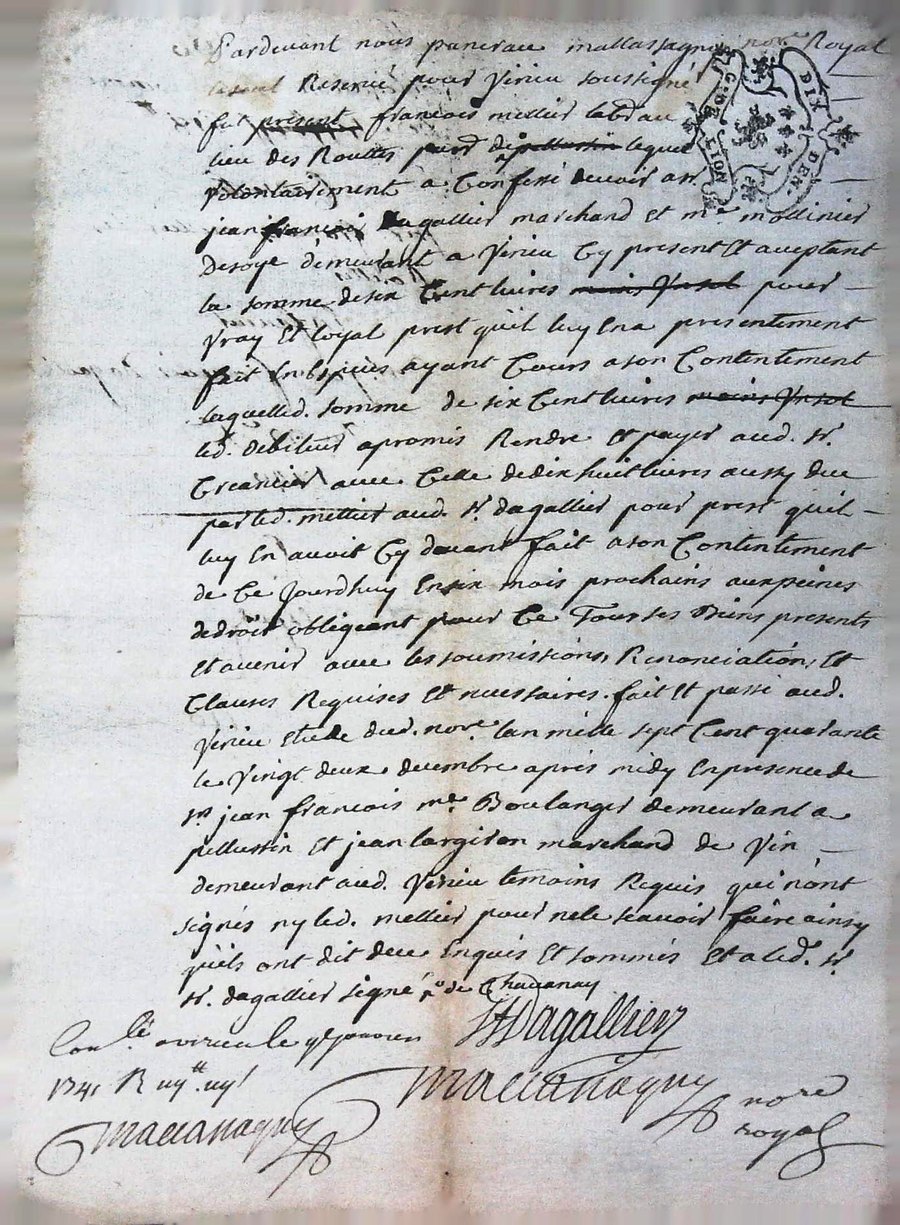 Pardevant nous pancrace mallassagny nore Royal
Reservé pour Virieu soussigné
fut present francois mellier lab
lieu des Routtes parr de pellussin lequel
volontairement a Confessé devoir a sr.
jean francois dagallier marchand et me. mollinier
desoye demeurant a Virieu Cy present et aceptant
la somme desix Cent livres moins Vnsol pour
Vray et loyal prest qu'il luy en a presentement
fait En Espices ayant Cours a son Contentement
laquelled. somme de six Cent livres moins Vnsol
led. debiteur a promis Rendre et payer aud. sr.
Creancier avec Celle dedix huit livres aussy due
par led. mellier aud. sr. dagallier pour prest quil
luy En avoit Cy davant fait a son Contentement
de Ce Jourdhuy Ensix mois prochains aux peines
dedroit obligeant pour Ce Tous ses Biens presents
et avenir avec les soumissions, Renonciations, et
Clauses Requises et necessaires. fait et passé aud.
Virieu Etude dud. nore. lan mille sept Cent quarante
le Vingt deux decembre apres midy En presence de
sr. jean francois me. Boulanger demeurant a
pellussin et jean largiron marchand de Vin
demeurant aud. Virieu temoins Requis qui n'ont
signés ny led. mellier pour ne le scavoir faire ainsy
qu'ils ont dit de ce Enquis et sommés et a led. sr.
sr. dagallier signé po. de Chavanay
JfDagallier
Conlé. a virieu le janvier
1741 R
Mallassagny nore
royal
Mallassagny
G. DE LION
DIX DEN.